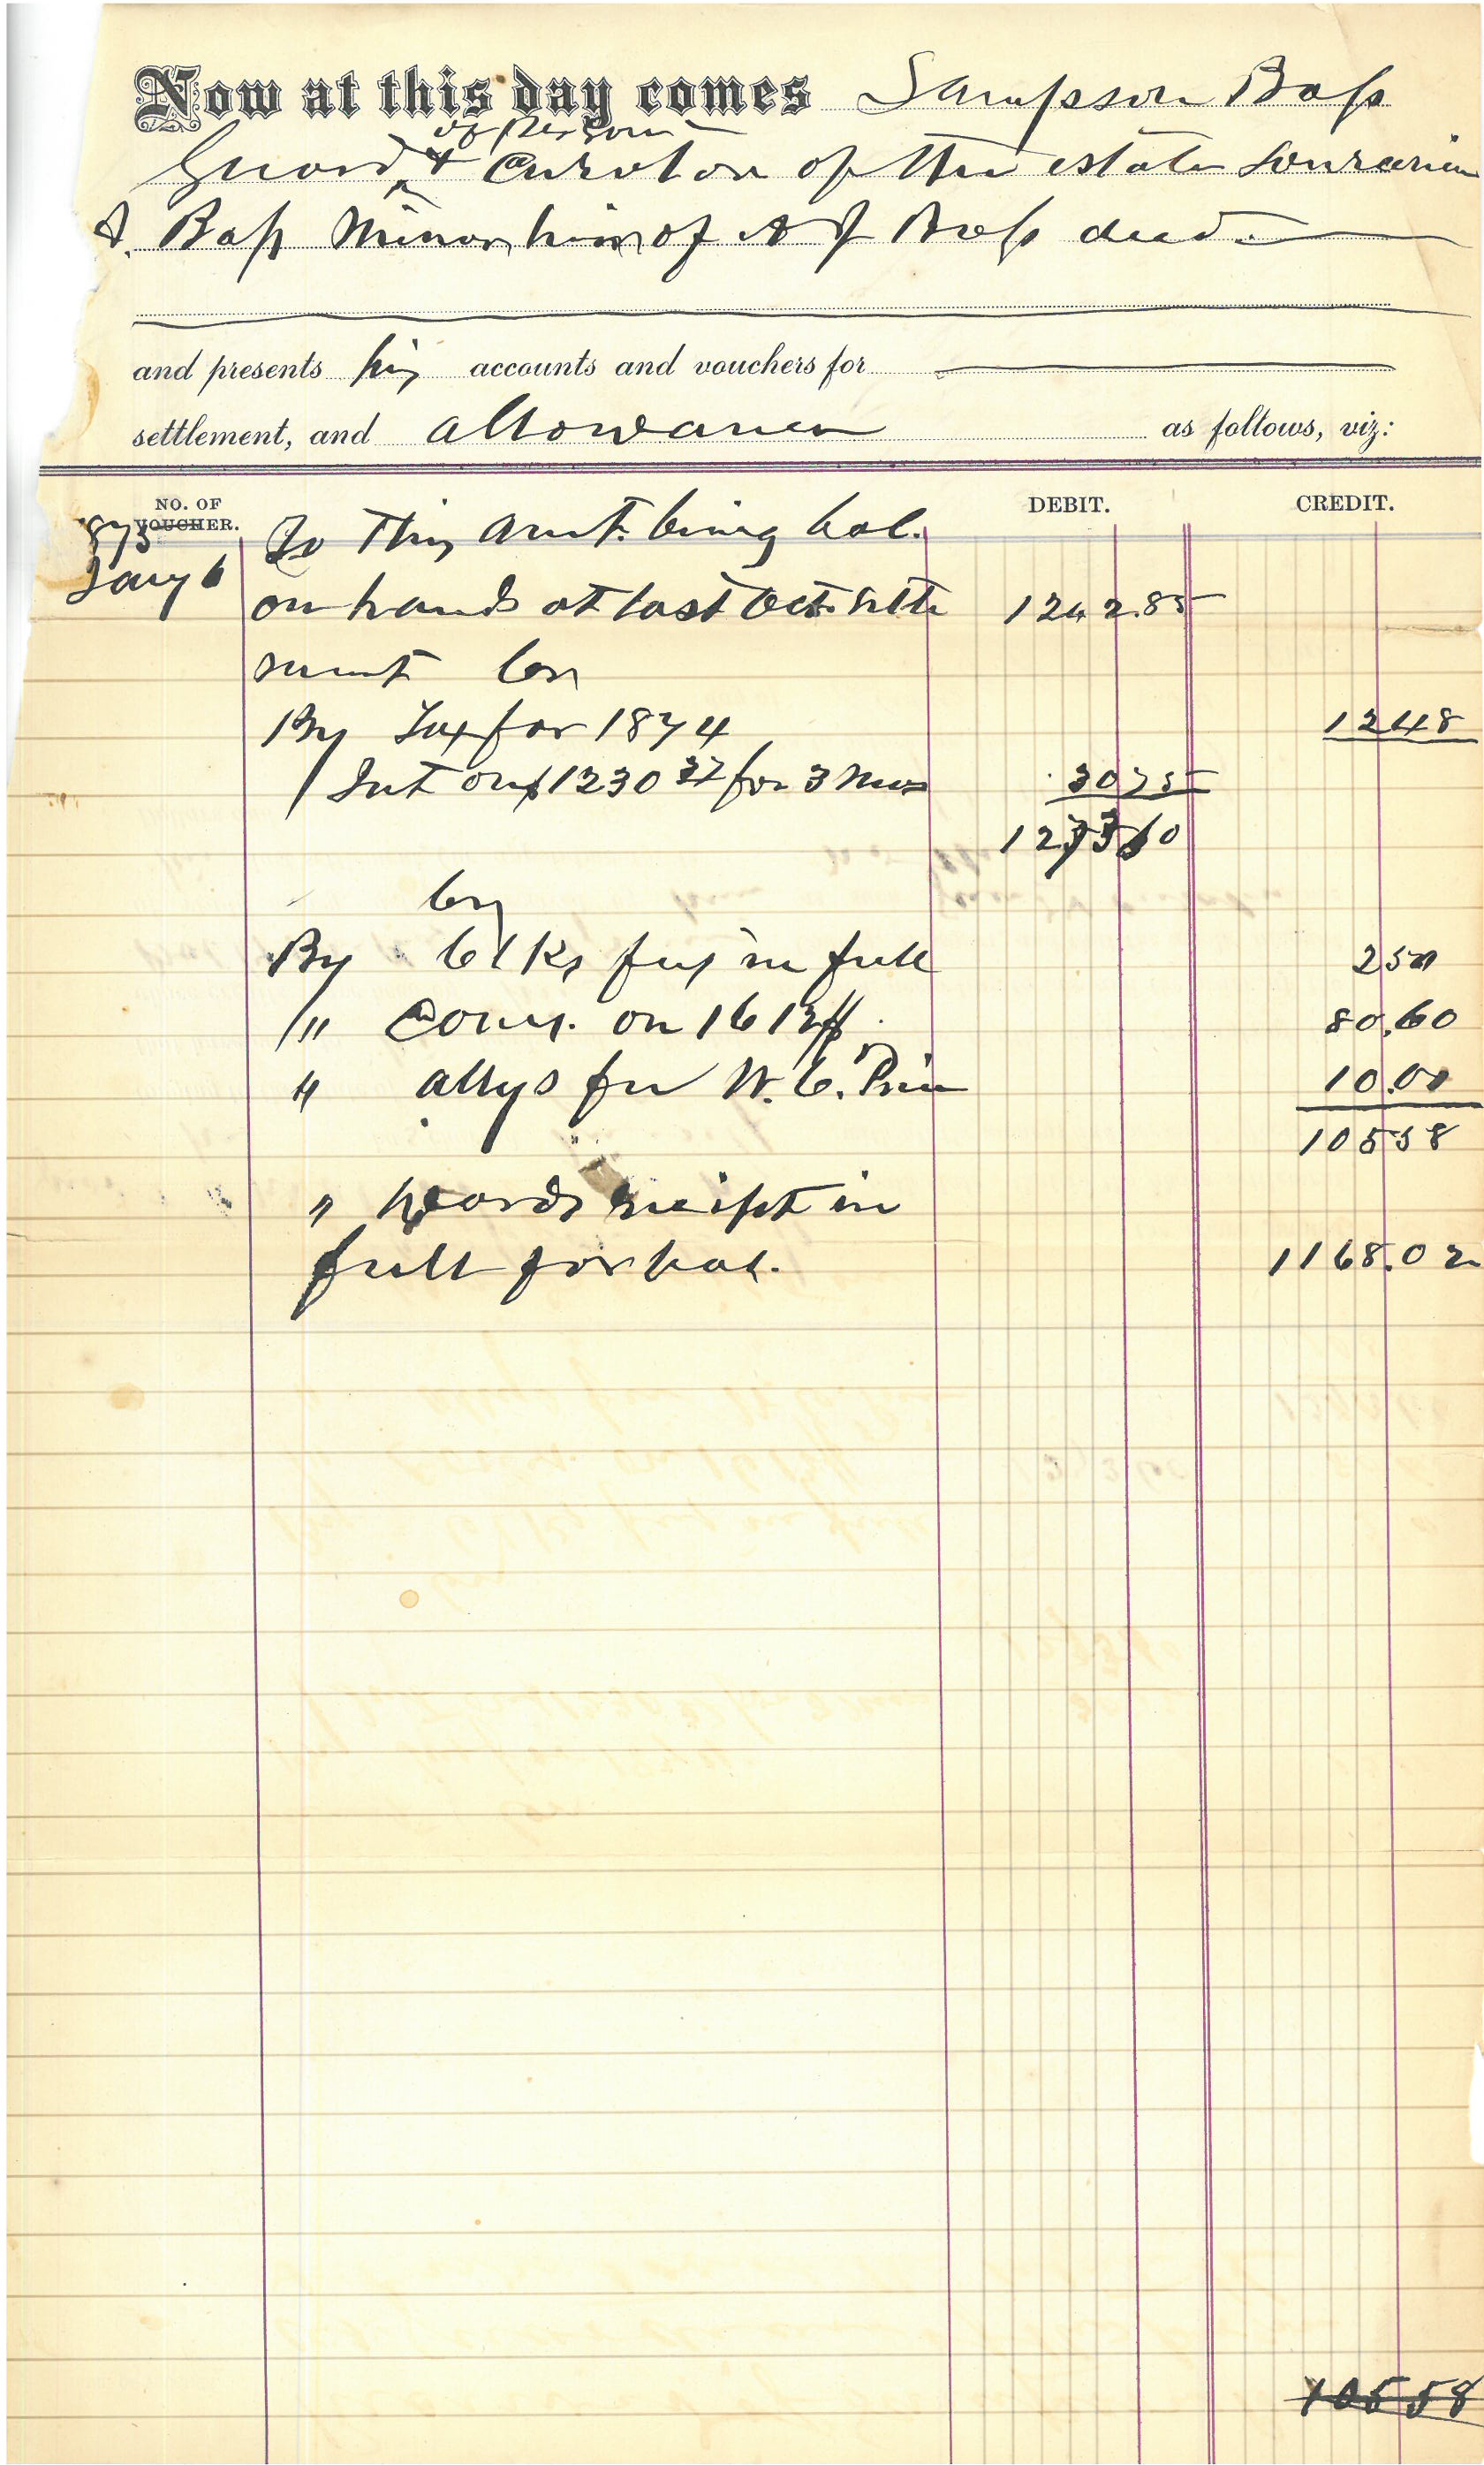 Now at this day comes Sampson Bass
of Person
Guard & Curator of the estate
J. Bass Minor heir of A J Bass decd.
and presents his accounts and vouchers for
settlement, and allowance as follows, viz:
NO. OF VOUCHER. DEBIT. CREDIT.
1875 To This amt. being bal.
Jany 6 on hands at last Oct. settle 1242.85
ment Cr
By Tax for 1874 1248
/ Int on $1230 37 for 3 Mos 3075
127360
Cr
By Clks fees in full 250
/" Coms. on 1612 80.60
" attys fee W. C. Price 10.00
10558
" Wards receipt in
full for bal. 1168.02
10558